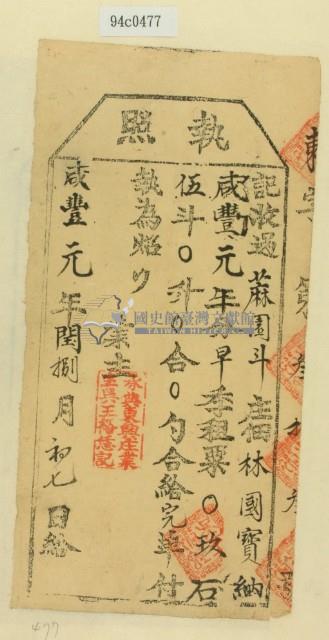 94c0477
執照
記收過蔴園斗庄佃林國寶納
咸豐元年分早季租粟〇玖石
伍斗〇升〇合〇勺合給完單付
執為炤
業主
咸豐元年閏捌月初七日給
國史館臺灣文獻館
TAIWAN HISTORICA
477